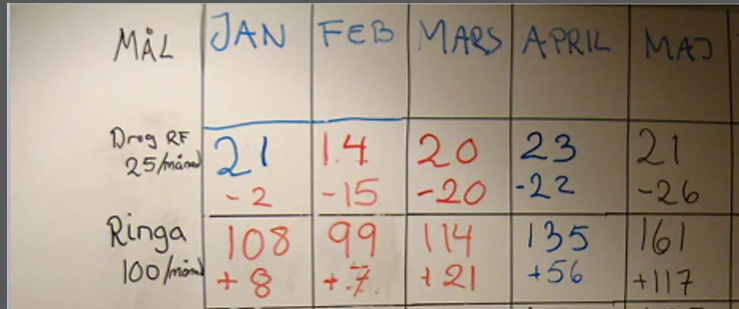 MÅL JAN FEB MARS APRIL MAJ
Drog RF 21 14 20 23 21
25/månad -2 -15 -20 -22 -26
Ringa 108 99 114 135 161
100/månad +8 +7 +21 +56 +117